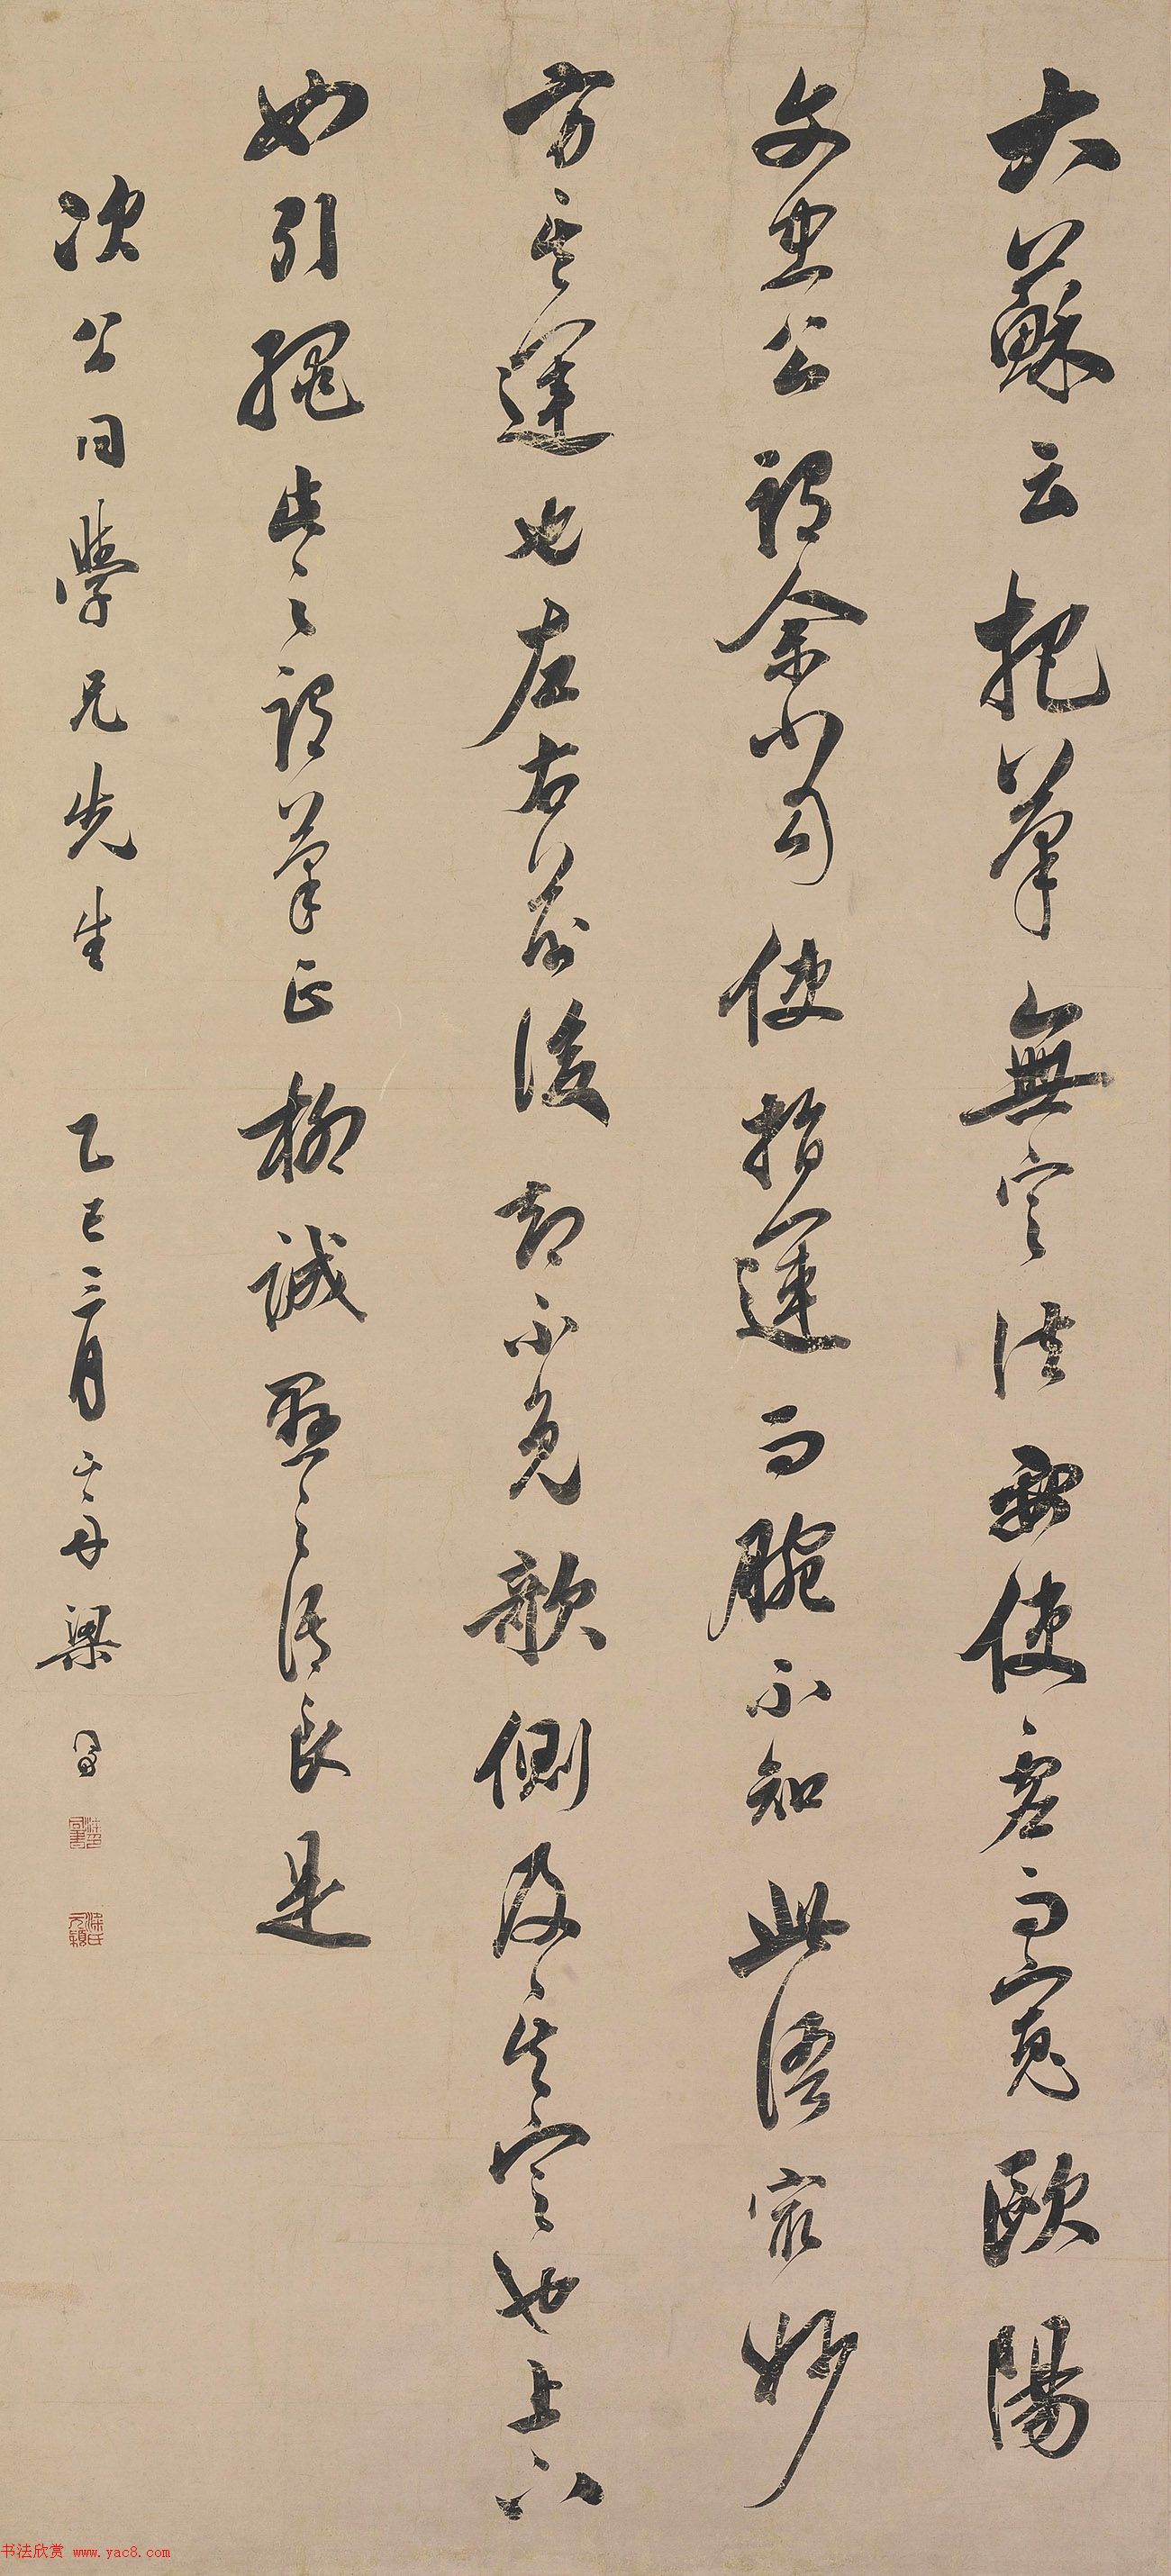 大蘇云把筆無定法要使虛而寬歐陽
文忠公謂余當使指運而腕不知此語最妙
方其運也左右前後卻不免欹側及其定也上下
如引繩此之謂筆正柳誠懸之語良是
次公同學兄先生 乙巳三月 山舟梁同書
梁氏元穎
书法欣赏 www.yac8.com